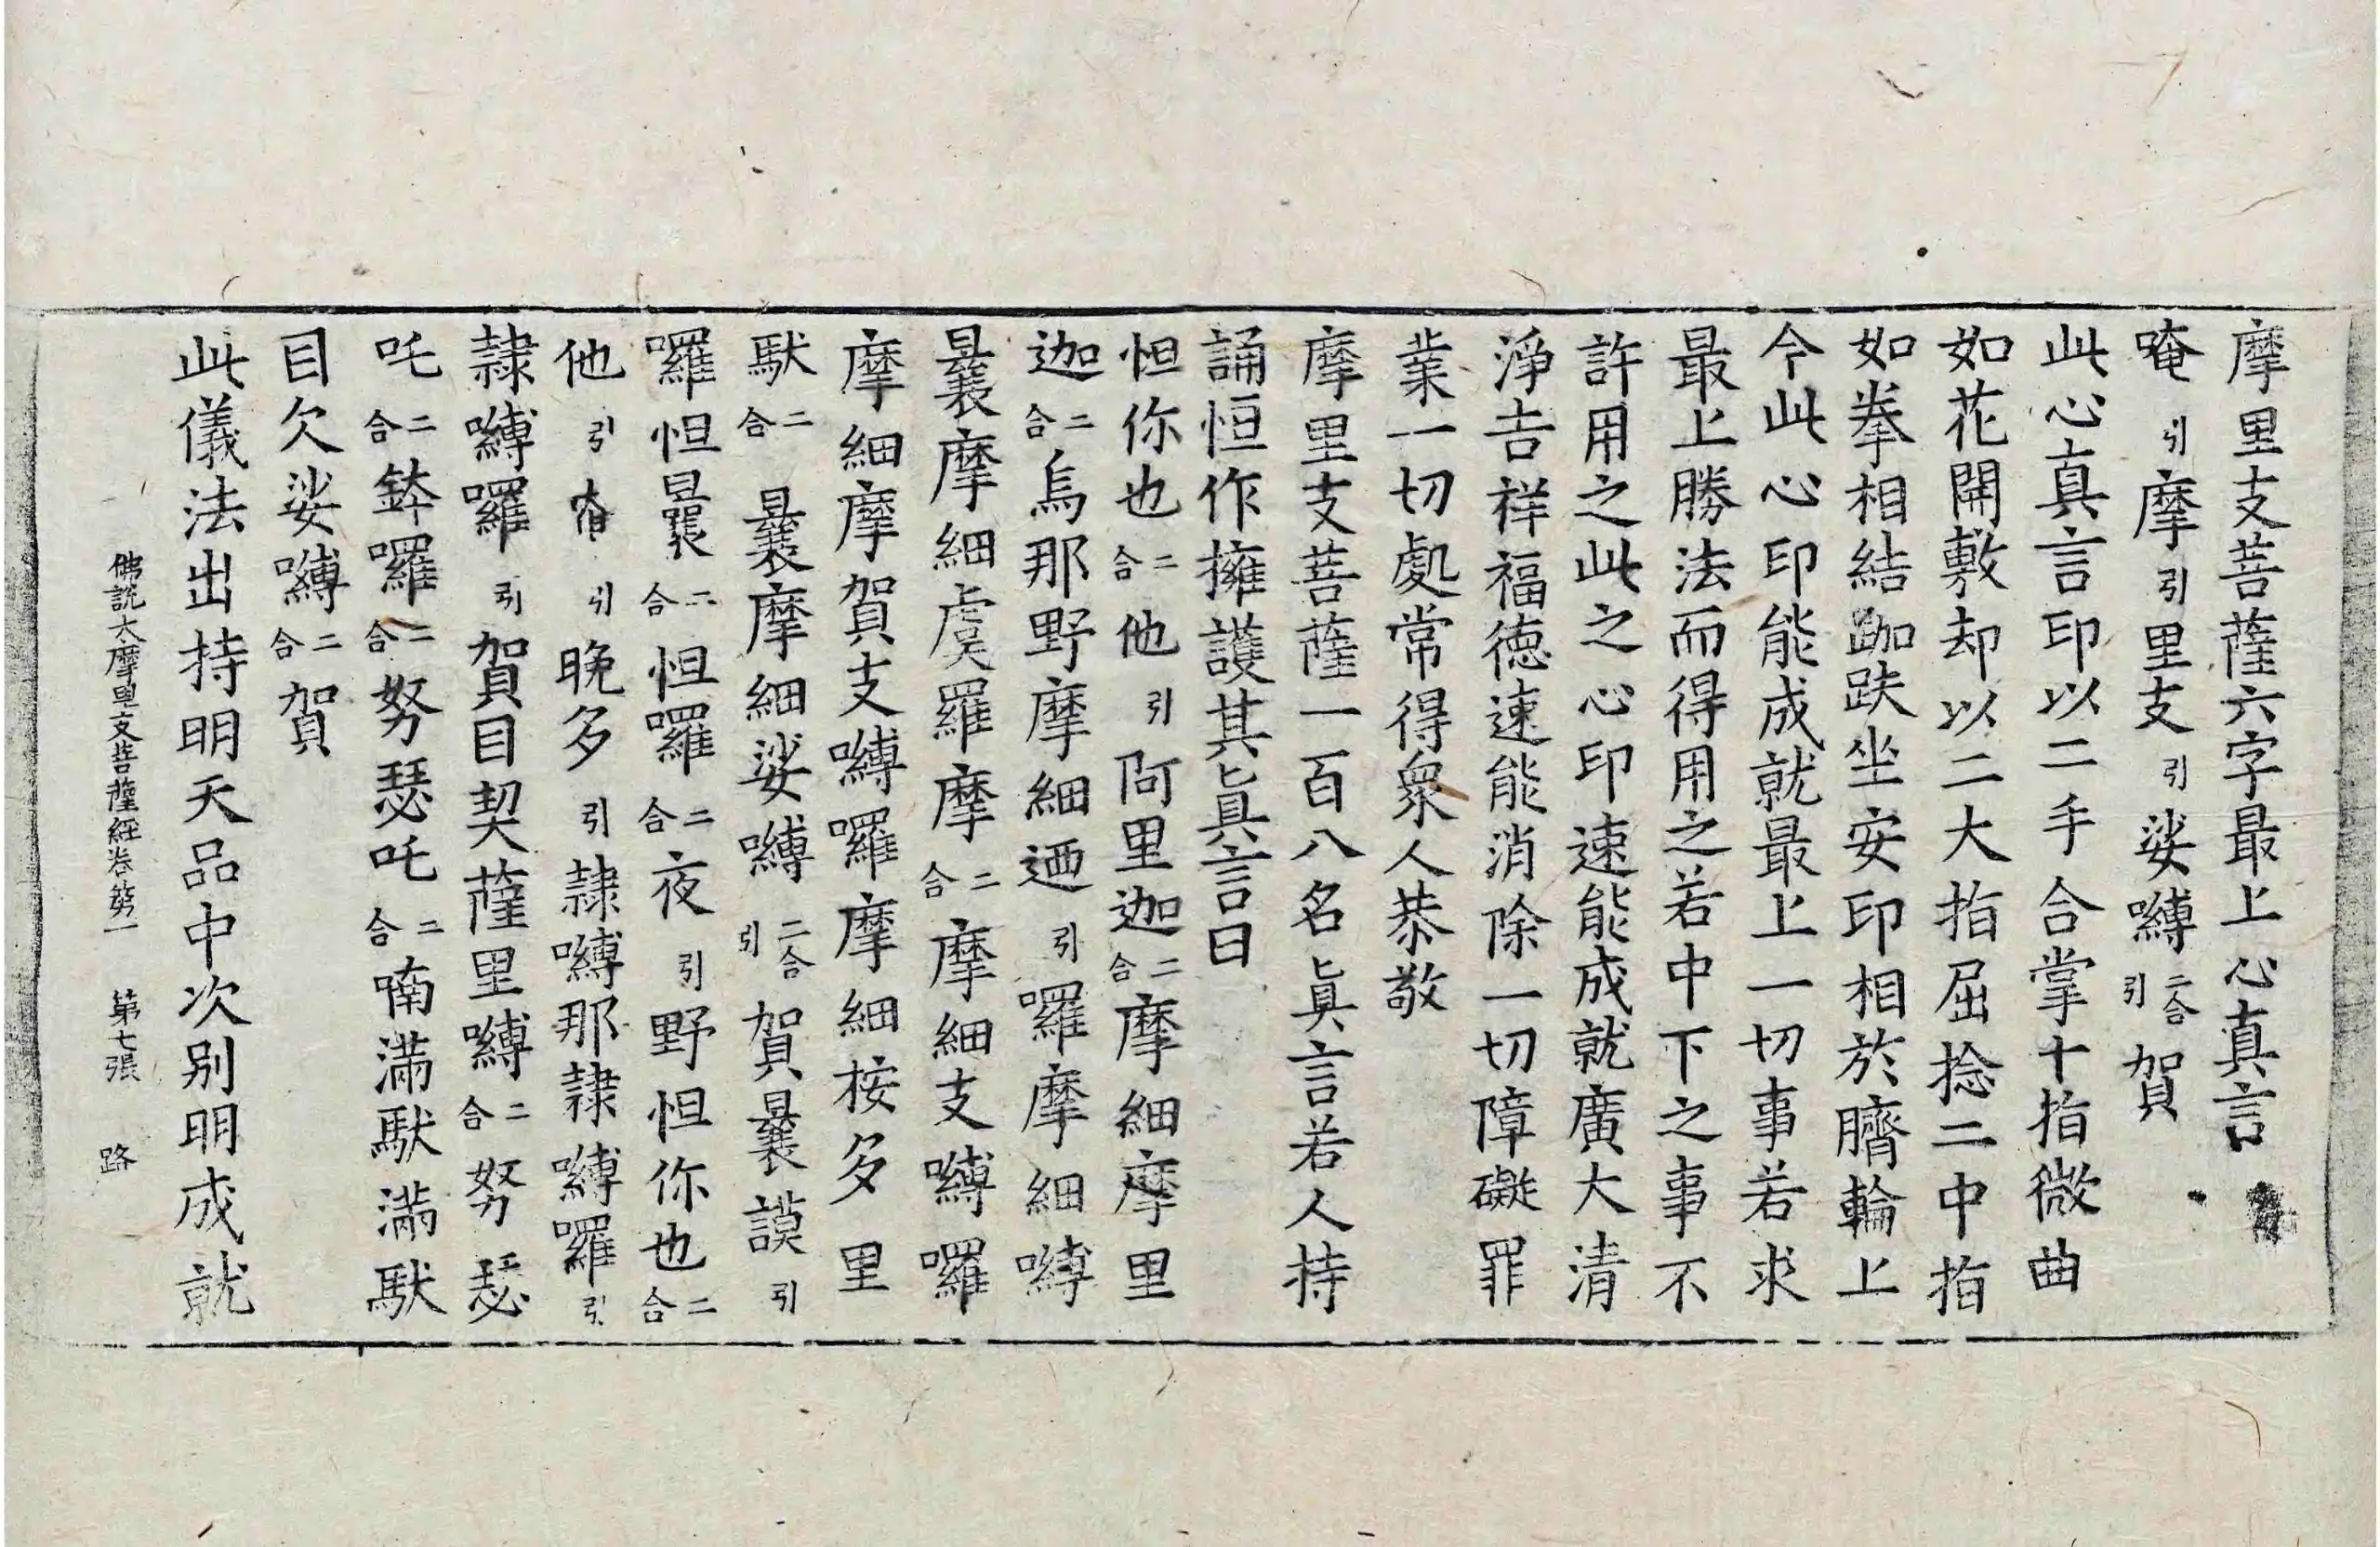 摩里支菩薩六字最上心真言
唵引摩引里支引娑嚩二合引賀
此心真言印以二手合掌十指微曲
如花開敷却以二大指屈捻二中指
如拳相結跏趺坐安印相於臍輪上
今此心印能成就最上一切事若求
最上勝法而得用之若中下之事不
許用之此之心印速能成就廣大清
淨吉祥福德速能消除一切障礙罪
業一切處常得衆人恭敬
摩里支菩薩一百八名眞言若人持
誦恒作擁護其眞言曰
怛你也二合他引阿里迦二合摩細摩里
迦二合烏那野摩細迺引囉摩細嚩
曩摩細虞羅摩二合摩細支嚩囉
摩細摩賀支嚩囉摩摩細按多里
馱二合曩摩細娑嚩二合引賀曩謨引
囉怛曩二合怛囉二合夜引野怛你也二合
他引引晚多引隷嚩那隷嚩囉引
隷嚩囉引賀目契薩里嚩二合努瑟
吒二合鉢囉二合努瑟吒二合喃滿馱滿馱
目欠娑嚩二合賀
此儀法出持明天品中次别明成就
佛說大摩里支菩薩經卷第一 第七張 路